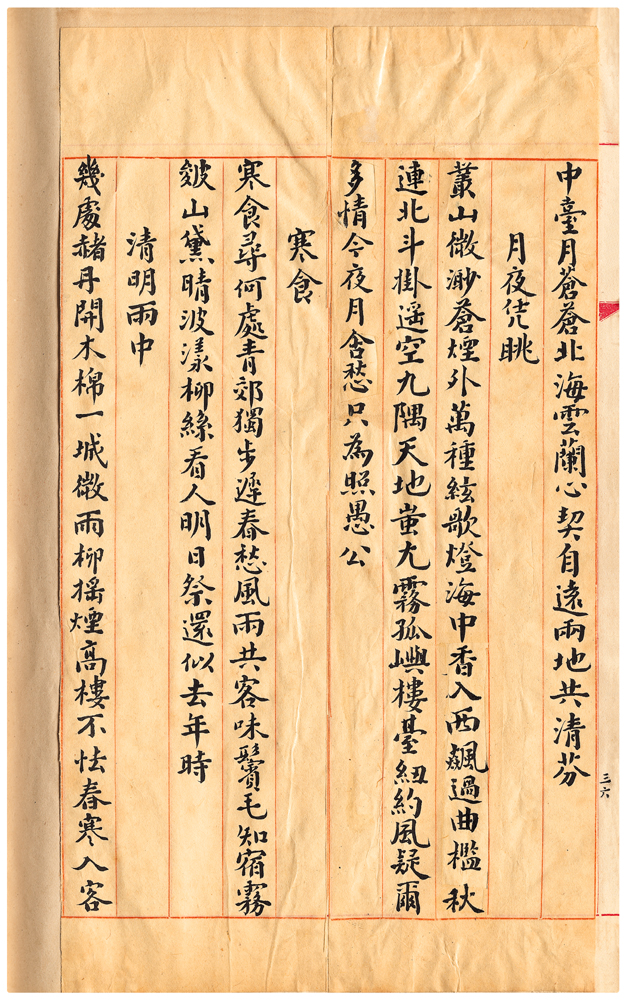 中臺月蒼蒼北海雲蘭心契自遠兩地共清芬
月夜凭眺
叢山微渺蒼煙外萬種絃歌燈海中香入西飆過曲檻秋
連北斗掛遥空九隅天地蚩尤霧孤嶼樓臺紐約風疑爾
多情今夜月含愁只為照愚公
寒食
寒食尋何處青郊獨步遲春愁風雨共客味鬢毛知宿霧
皴山黛晴波漾柳絲看人明日祭還似去年時
清明雨中
幾處赭丹開木棉一城微雨柳摇煙高樓不怯春寒入客
三六